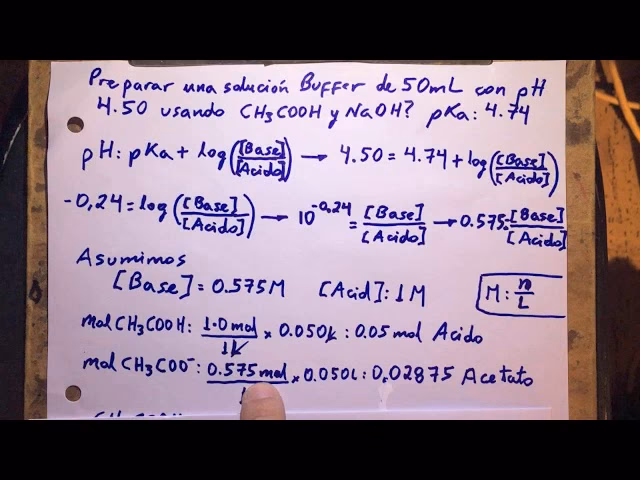 Preparar una solución Buffer de 50mL con pH
4.50 usando CH₃COOH y NaOH? pKa: 4.74
pH: pKa + log([Base]/[Acido]) → 4.50 = 4.74 + log([Base]/[Acido])
-0,24 = log([Base]/[Acido]) → 10^-0,24 = [Base]/[Acido] → 0.575: [Base]/[Acido]
Asumimos
[Base] = 0.575M [Acid]: 1M M: n/L
mol CH₃COOH: 1.0 mol/1L x 0.050L : 0.05 mol Acido
mol CH₃COO⁻: 0.575 mol x 0.050L : 0,02875 Acetato